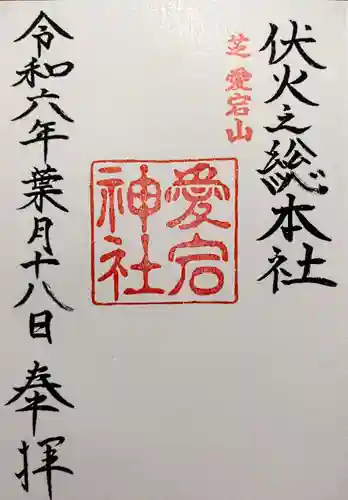 伏火之総本社
芝愛宕山
愛宕
神社
令和六年葉月十八日 奉拝